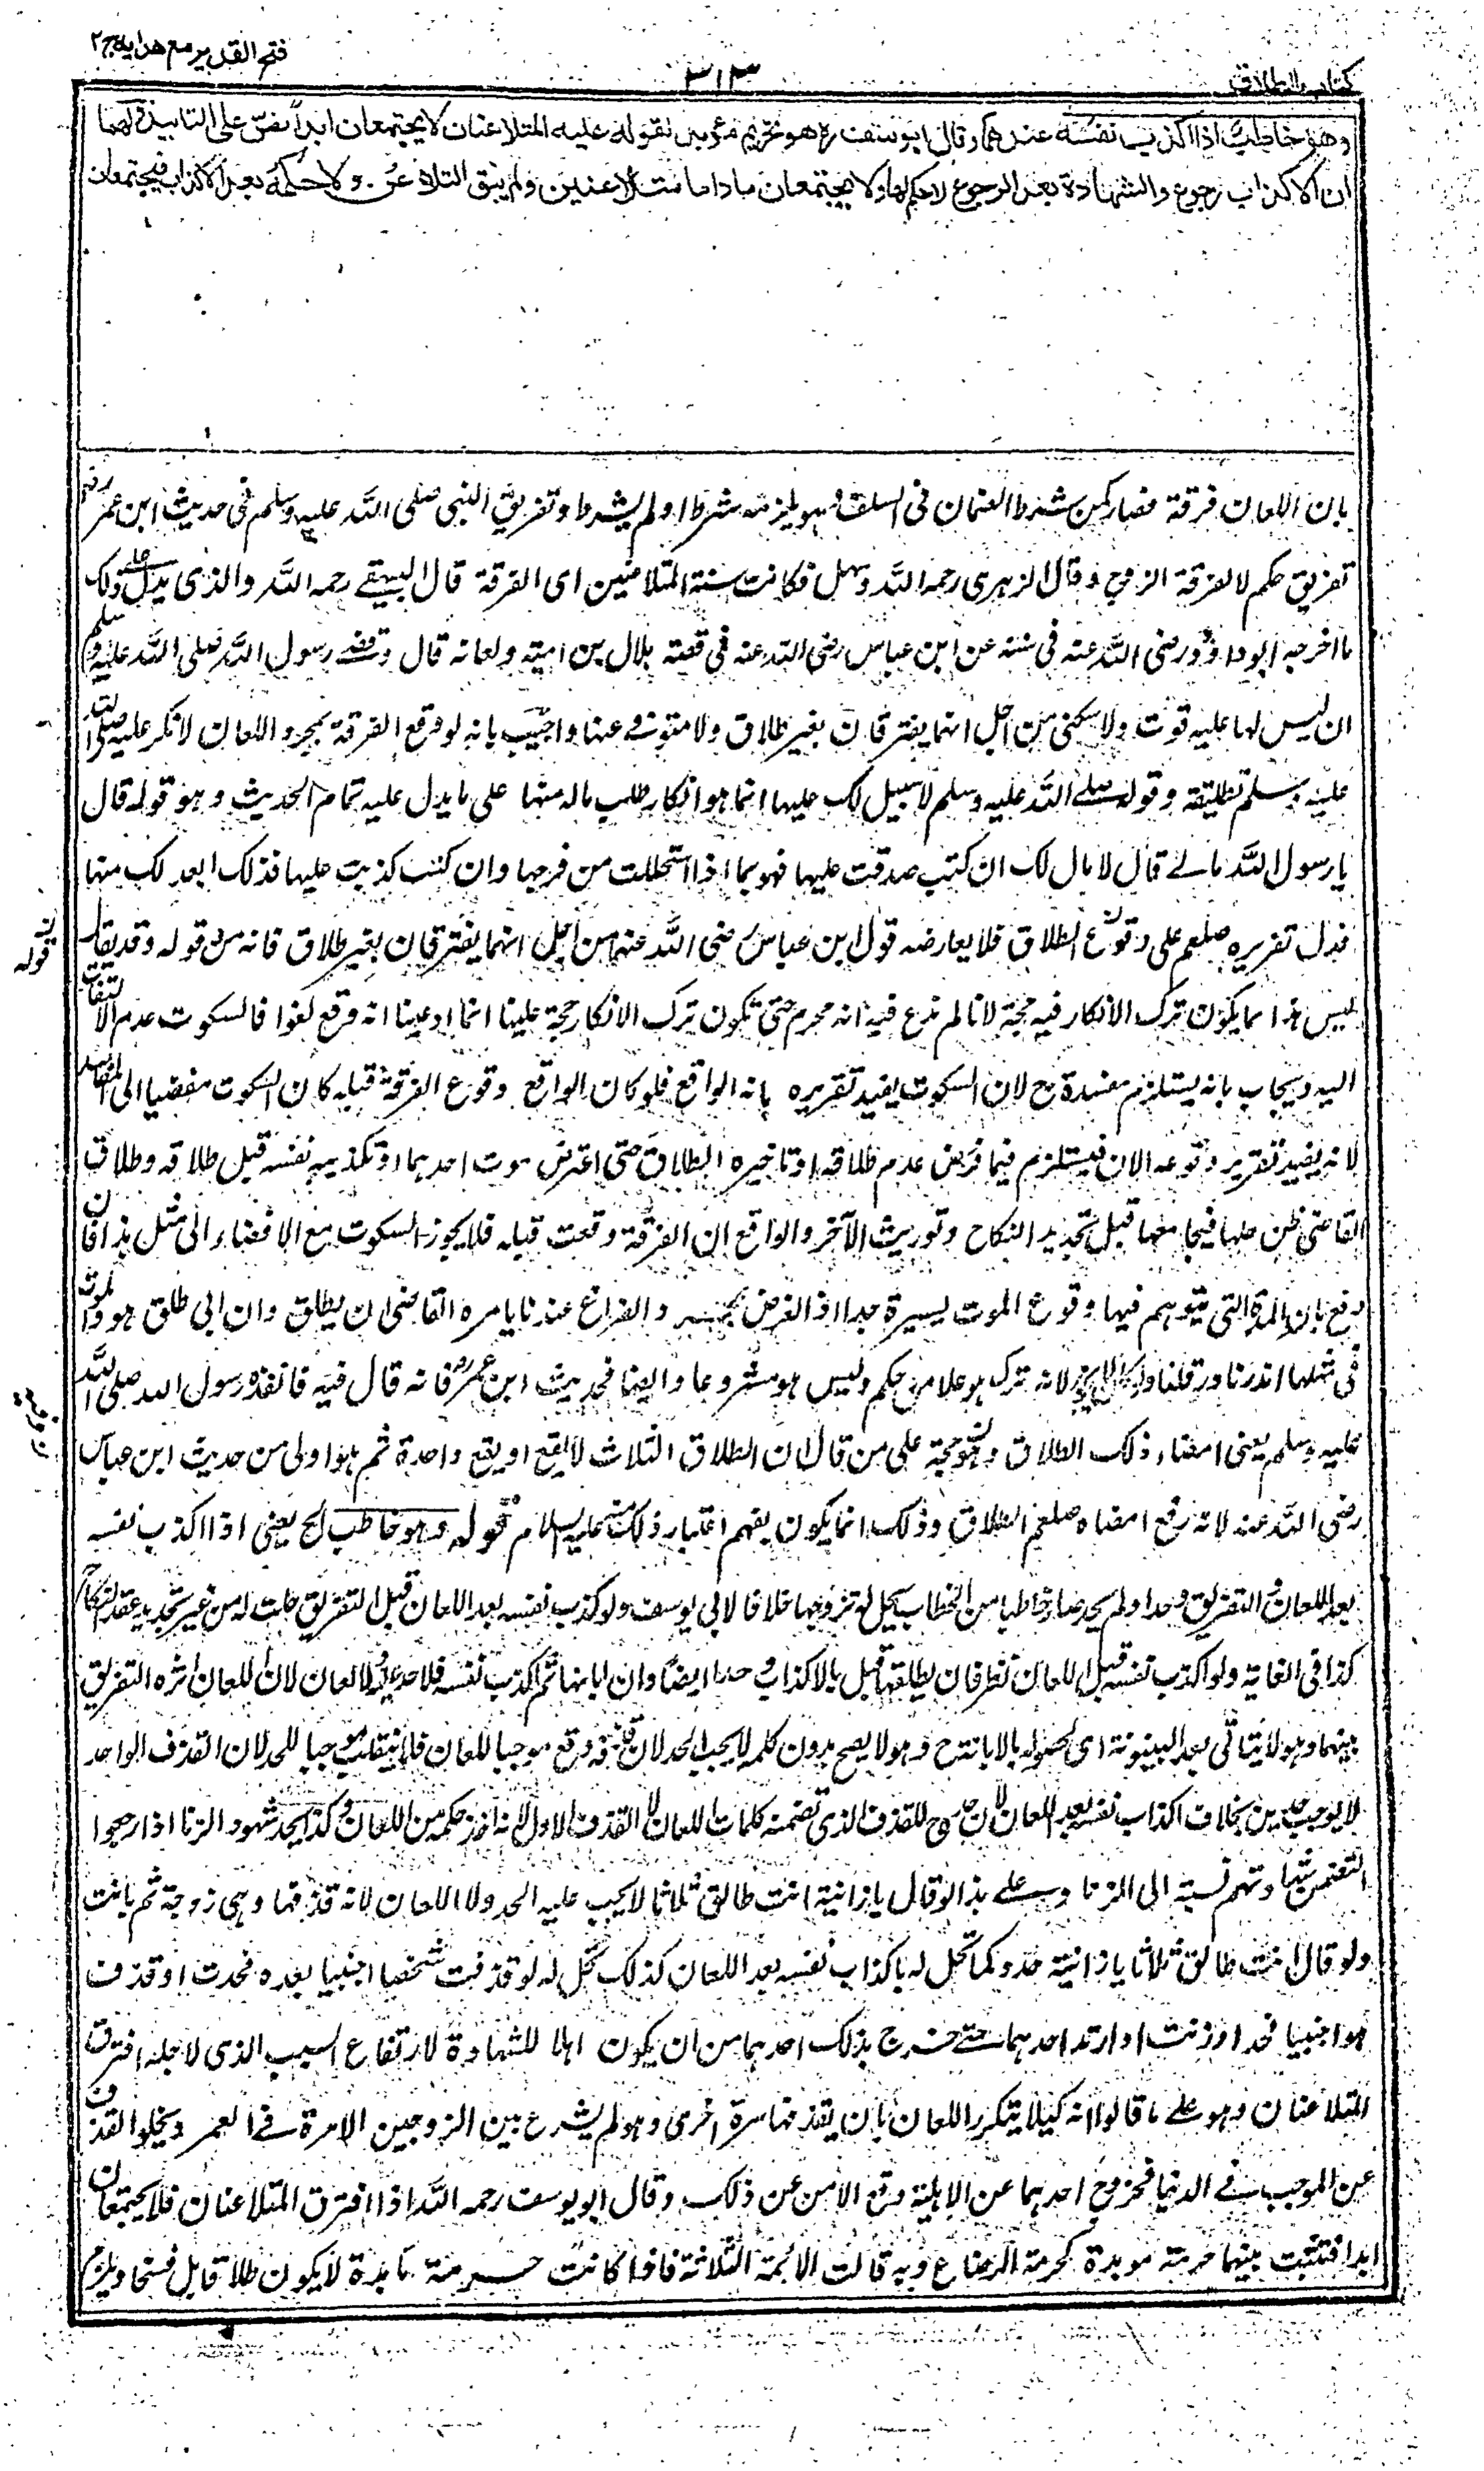 فتح القدير مع هدايه ج ٢
٣١٣
كتاب الطلاق
وهو خاطب اذا اكذب نفسه عندهما وقال ابو يوسف ره هو تحريم مؤبد لقوله عليه المتلاعنان لا يجتمعان ابدا نص على التابيد ولهما
ان الاكذاب رجوع والشهادة بعد الرجوع لا حكم لها ولا يجتمعان ما داما متلاعنين ولم يبق التلاعن ولا حكمه بعد الاكذاب فيجتمعان
بان اللعان فرقة فصار كمن شرط الضمان فى السلف وهو يلزمه شرط او لم يشرط وتفريق النبى صلى الله عليه وسلم فى حديث ابن عمر رض
تفريق حكم لا لفرقة الزوج وقال الزهرى رحمه الله وسهل فكانت سنة المتلاعنين اى الفرقة قال البيهقے رحمه الله والذى يدل على ذلك
ما اخرجه ابو داؤد رضى الله عنه فى سننه عن ابن عباس رضى الله عنه فى قصة هلال بن امية ولعانه قال وقضے رسول الله صلى الله عليه وسلم
ان ليس لها عليه قوت ولا سكنى من اجل انهما يفترقان بغير طلاق ولا متوفى عنها واجيب بانه لو وقع الفرقة بمجرد اللعان لانكر عليه صلى الله
عليه وسلم تطليقه وقوله صلے الله عليه وسلم لا سبيل لك عليها انما هو انكار طلب ماله منها على ما يدل عليه تمام الحديث وهو قوله قال
يا رسول الله مالے قال لا مال لك ان كنت صدقت عليها فهو بما استحللت من فرجها وان كنت كذبت عليها فذلك ابعد لك منها
فدل تقريره صلعم على وقوع الطلاق فلا يعارضه قول ابن عباس رضى الله عنهما من اجل انهما يفترقان بغير طلاق فانه من قوله وقد يقال
ليس هذا مما يكون ترك الانكار فيه حجة لانا لم ندع فيه انه محرم حتى تكون ترك الانكار حجة علينا انما ادعينا انه وقع لغوا فالسكوت عدم الالتفات
اليه ويجاب بانه يستلزم مفسدة ح لان السكوت يفيد تقريره بانه الواقع فلو كان الواقع وقوع الفرقة قبله كان السكوت مفضيا الى المفاسد
لانه يفيد تقرير وقوعه الان فيستلزم فيما فرض عدم طلاقه او تاخيره الطلاق حتى اعترض موت احدهما او تكذيبه نفسه قبل طلاقه وطلاق
القاضى ظن حلها فيجامعها قبل تجديد النكاح وتوريث الآخر والواقع ان الفرقة وقعت قبله فلا يجوز السكوت مع الافضاء الى مثل هذا فان
دفع بان المدة التى يتوهم فيها وقوع الموت يسيرة جدا اذ الفرض والفراغ عندنا يامره القاضى ان يطلق وان ابى طلق هو والموت
فى مثلها اندر نادر قلنا لانه ترك هو علا من حكم وليس هو مشروعا وايضا فحديث ابن عمر رض فانه قال فيه فانفذه رسول الله صلى الله
عليه وسلم يعنى امضاء ذلك الطلاق وهو حجة على من قال ان الطلاق الثلاث لا يقع او يقع واحدة ثم هو اولى من حديث ابن عباس
رضى الله عنه لانه رفع امضاه صلعم الطلاق وذلك انما يكون بفهم اعتبار ذلك منه عليه السلام قوله وهو خاطب الخ يعنى اذا اكذب نفسه
بعد اللعان والتفريق وحد او لم يحد صار خاطبا من الخطاب يحل له تزوجها خلافا لابى يوسف ولو كذب نفسه بعد اللعان قبل التفريق حلت له من غير تجديد عقد النكاح
كذا فى الغاية ولو اكذب نفسه قبل اللعان نظر فان لم يطلقها قبل الاكذاب حد ايضا وان ابانها ثم اكذب نفسه فلا حد عليه ولا لعان لان اللعان اثره التفريق
بينهما وهو لا يتاتى بعد البينونة اى لحصوله بالابانة ح وهو لا يصح بدون حكمه لا يجب الحد لان قذفه وقع موجبا للعان فلا ينقلب موجبا للحد لان القذف الواحد
لا يوجب حدين بخلاف اكذاب نفسه بعد اللعان لان حد ح للقذف الذى تضمنه كلمات اللعان لا القذف الاول لانه اخذ حكمه من اللعان وكذا يحد شهود الزنا اذا رجعوا
لتضمن شهادتهم نسبة الى الزنا وعلے هذا لو قال يا زانية انت طالق ثلاثا لا يجب عليه الحد ولا اللعان لانه قذفها وهى زوجة ثم بانت
ولو قال انت طالق ثلاثا يا زانية حد وكما تحل له باكذاب نفسه بعد اللعان كذلك تحل له لو قذفت شخصا اجنبيا بعده فحدت او قذف
هو اجنبيا فحد او زنت او ارتد احدهما حتے خرج بذلك احدهما من ان يكون اهلا للشهادة لارتفاع السبب الذى لاجله افترق
المتلاعنان وهو علے ما قالوا انه كيلا يتكرر اللعان بان يقذفها مرة اخرى وهو لم يشرع بين الزوجين الا مرة فے العمر ويخلو القذف
عن الموجب فے الدنيا فخروج احدهما عن الاهلية وقع الامن عن ذلك وقال ابو يوسف رحمه الله اذا افترق المتلاعنان فلا يجتمعان
ابدا فتثبت بينهما حرمة موبدة كحرمة الرضاع وبه قالت الائمة الثلاثة فاذا كانت حرمة مابدة لا يكون طلاقا بل فسخا ويلزم